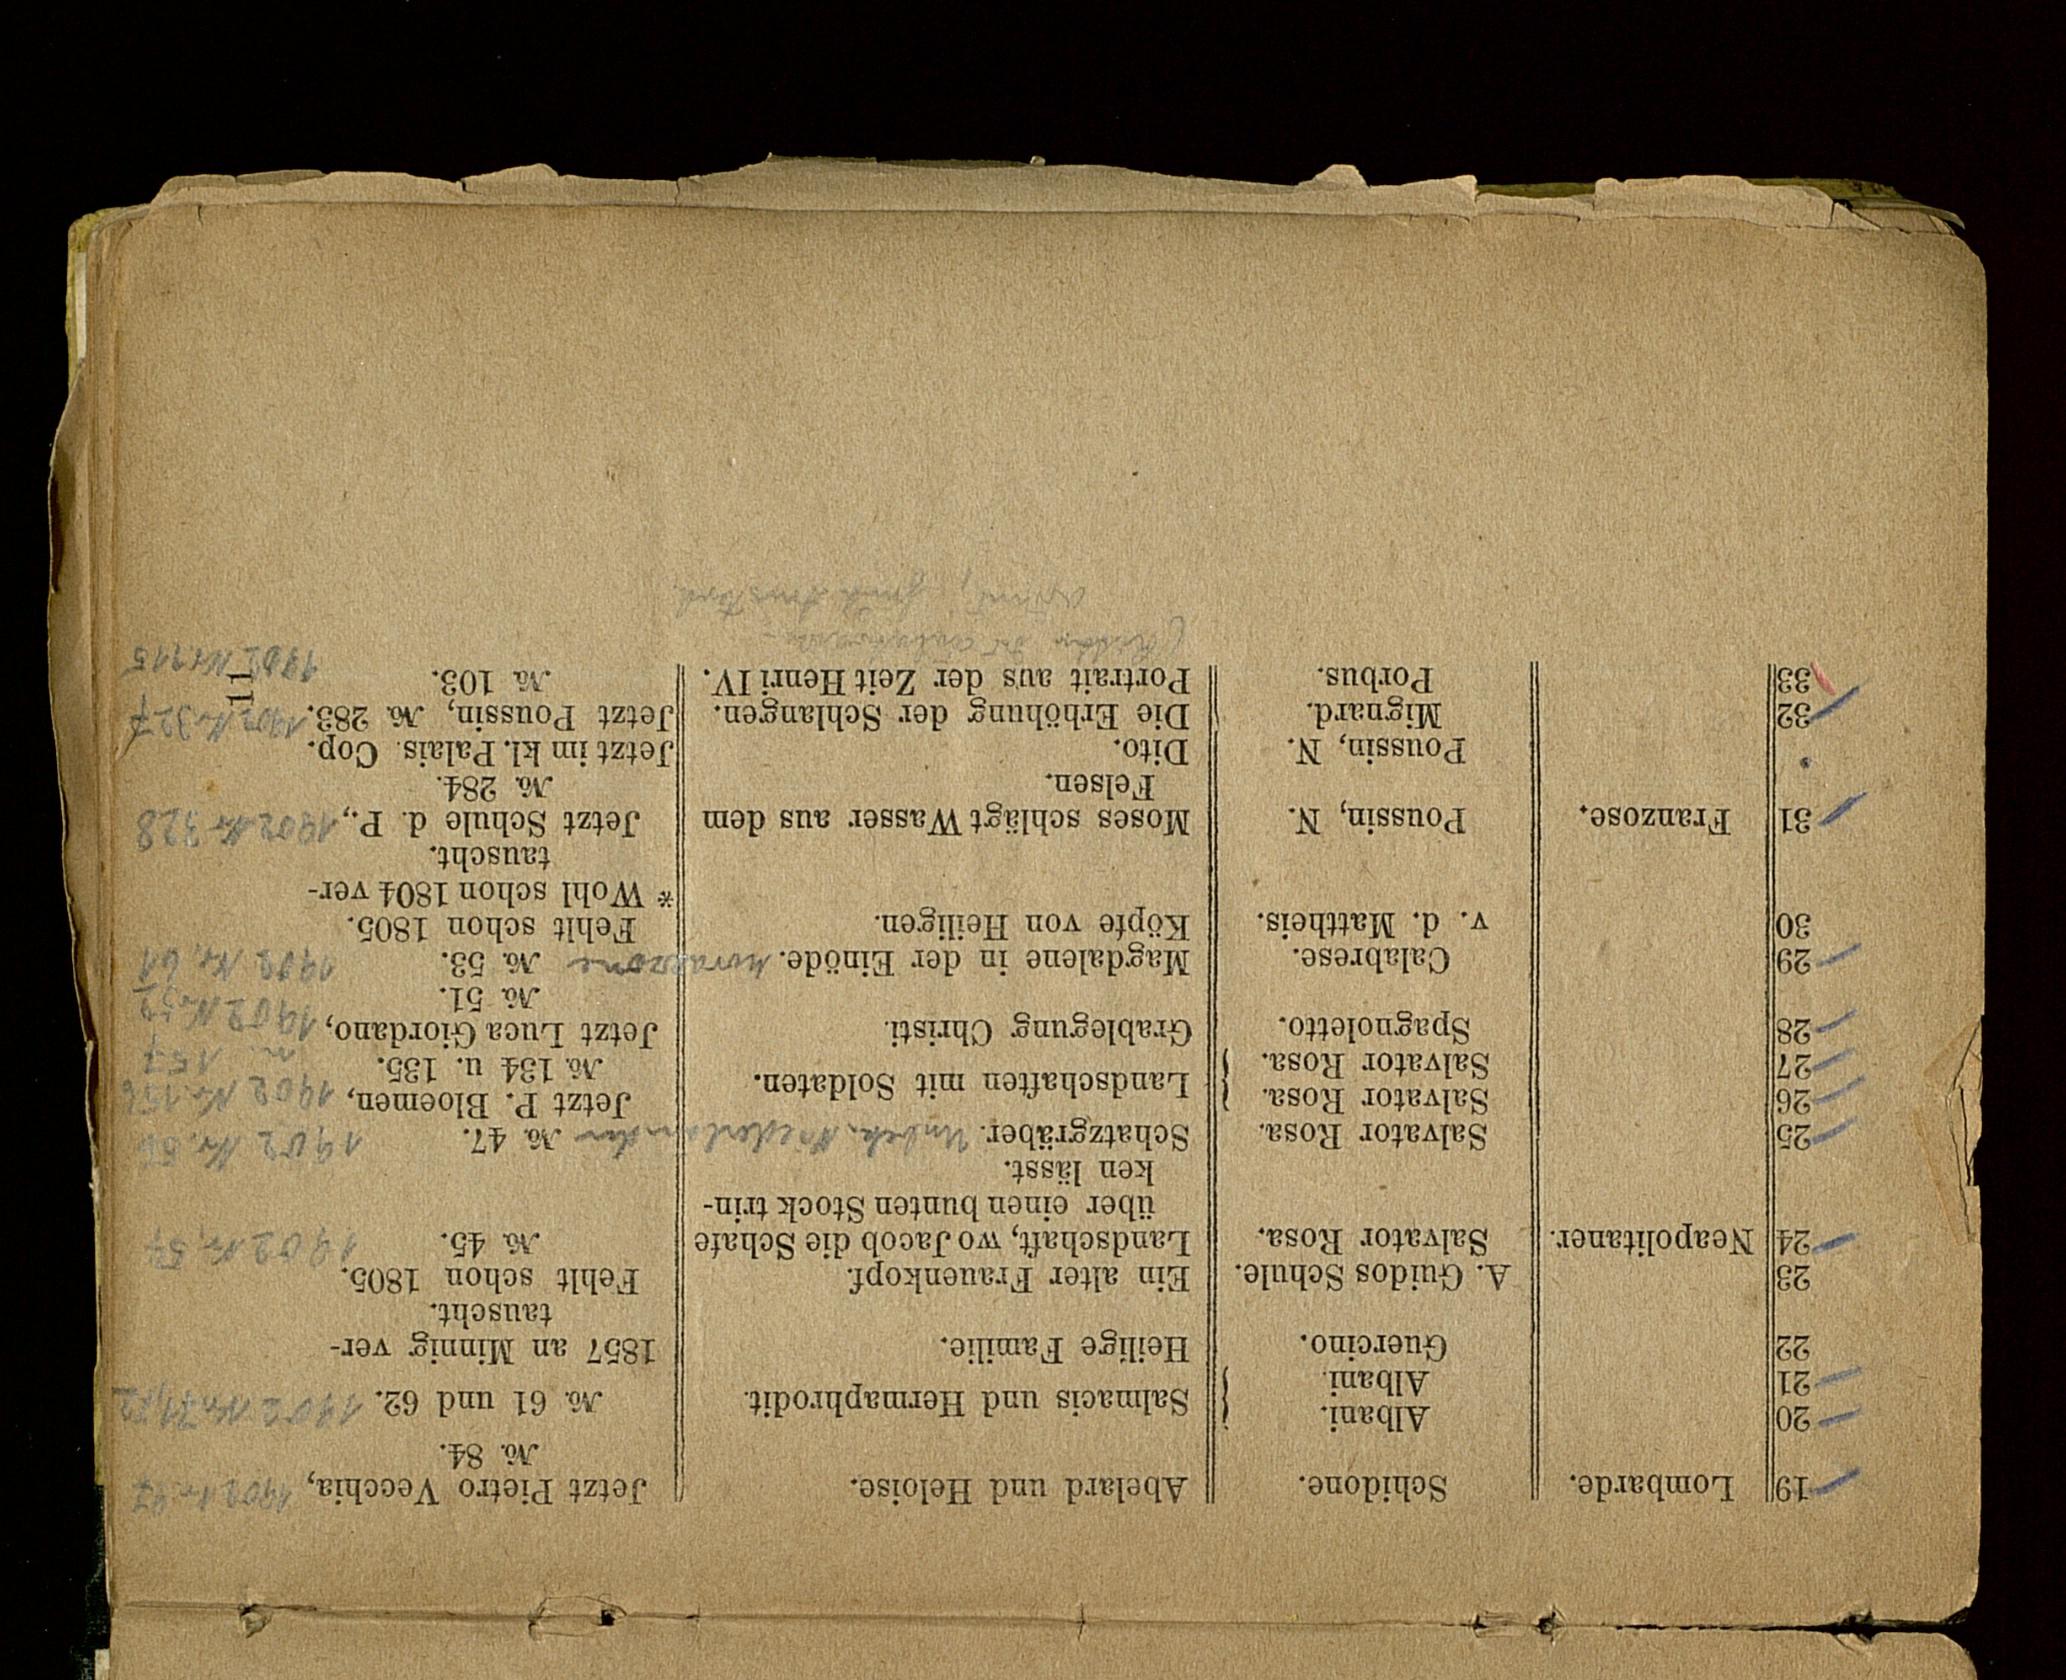 19 Lombarde. Schidone. Abelard und Heloise. Jetzt Pietro Vecchia, 1902 Nr. 97
№ 84.
20 Albani.
Salmacis und Hermaphrodit. № 61 und 62. 1902 Nr. 71, 72
21 Albani.
22 Guercino. Heilige Familie. 1857 an Minnig ver-
tauscht.
23 A. Guidos Schule. Ein alter Frauenkopf. Fehlt schon 1805.
24 Neapolitaner. Salvator Rosa. Landschaft, wo Jacob die Schafe № 45. 1902 Nr. 54
über einen bunten Stock trin-
ken lässt.
25 Salvator Rosa. Schatzgräber. Unbek. Niederländer № 47. 1902 Nr. 56
26 Salvator Rosa. Jetzt P. Bloemen, 1902 Nr. 156
Landschaften mit Soldaten.
27 Salvator Rosa. № 134 u. 135. u. 157
28 Spagnoletto. Grablegung Christi. Jetzt Luca Giordano, 1902 Nr. 59
№ 51.
29 Calabrese. Magdalene in der Einöde. Morazzone № 53. 1902 Nr. 61
30 v. d. Mattheis. Köpfe von Heiligen. Fehlt schon 1805.
* Wohl schon 1804 ver-
tauscht.
31 Franzose. Poussin, N. Moses schlägt Wasser aus dem Jetzt Schule d. P., 1902 Nr 328
Felsen. № 284.
Poussin, N. Dito. Jetzt im kl. Palais. Cop.
32 Mignard. Die Erhöhung der Schlangen. Jetzt Poussin, № 283. 1902 Nr. 327
33 Porbus. Portrait aus der Zeit Henri IV. № 103. 1902 Nr. 115
111